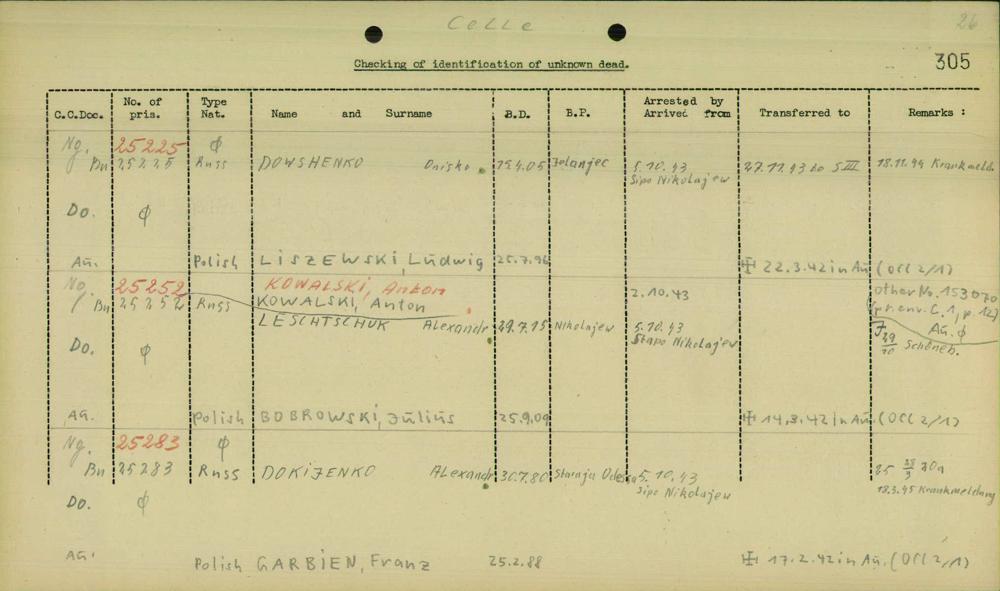 Celle 26
305
Checking of identification of unknown dead.
C.C.Doc. No. of pris. Type Nat. Name and Surname B.D. B.P. Arrested by Arrived from Transferred to Remarks :
Ng. 25225 ϕ
Bu 25225 Russ DOWSHENKO Onisko 15.4.05 Jelanjec 5.10.43 27.11.43 to S III 18.11.44
Sipo Nikolajew
Do. ϕ
Aü. Polish LISZEWSKI, Ludwig 25.7.96 22.3.42 in Aü (Occ 2/1)
Ng. 25252 KOWALSKI, Anton other No. 153070
Bu 25252 Russ KOWALSKI, Anton 2.10.43 env. C.1, p.12)
LESCHTSCHUK Alexandr 29.7.15 Nikolajew 5.10.43 Aü. ϕ
Stapo Nikolajew Schöneb.
Do. ϕ
Aü. Polish BOBROWSKI, Jülius 25.9.09 14.3.42 in Aü (Occ 2/1)
Ng. 25283 ϕ
Bu 25283 Russ DOKIJENKO Alexandr 30.7.80 Staraja 5.10.43
Sipo Nikolajew 18.3.45 Krankmeldung
Do. ϕ
Aü. Polish GARBIEN, Franz 25.2.88 17.2.42 in Aü. (Occ 2/1)